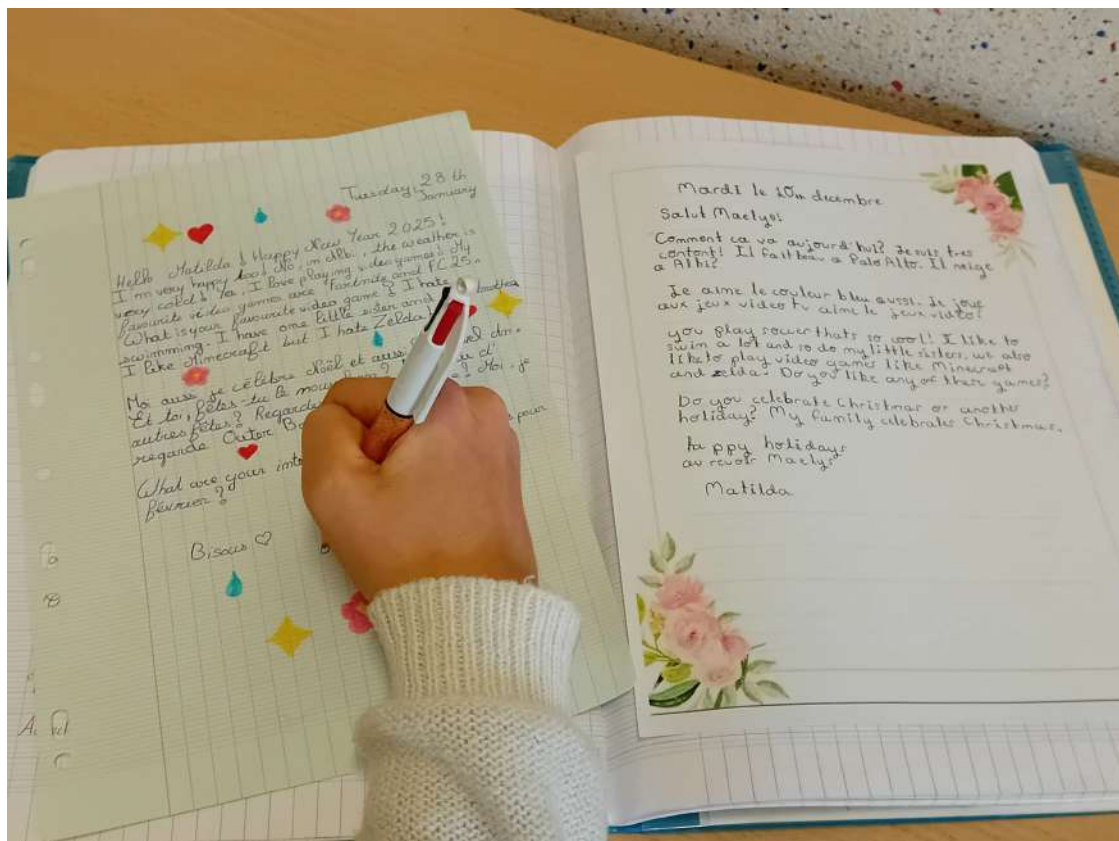 Tuesday, 28 th
January
Hello Matilda! Happy New Year 2025!
I'm very happy too! No, in Albi the weather is
very cold! Yes, I love playing videogames! My
favourite video games are Fortnite and FC 25.
What is your favourite video game? I hate
swimming. I have one little sister and brother
I like Minecraft but I hate Zelda!
Moi aussi je célèbre Noël et aussi
Et toi, fêtes-tu le nouvel d'
autres fêtes? Regarde ? Moi, je
regarde Outer pour
What are your
février?
Bisous ♡
Mardi le 10m decembre
Salut Maelys!
Comment ca va aujourd'hui? Je suis tres
content! Il fait beau a Palo Alto. Il neige
a Albi?
Je aime le couleur bleu aussi. Je joue
aux jeux video tu aime le jeux video?
you play soccer thats so cool! I like to
swim a lot and so do my little sisters, we also
like to play video games like Minecraft
and zelda. Do you like any of these games?
Do you celebrate Christmas or another
holiday? My family celebrates Christmas.
happy holidays
au revoir Maelys
Matilda